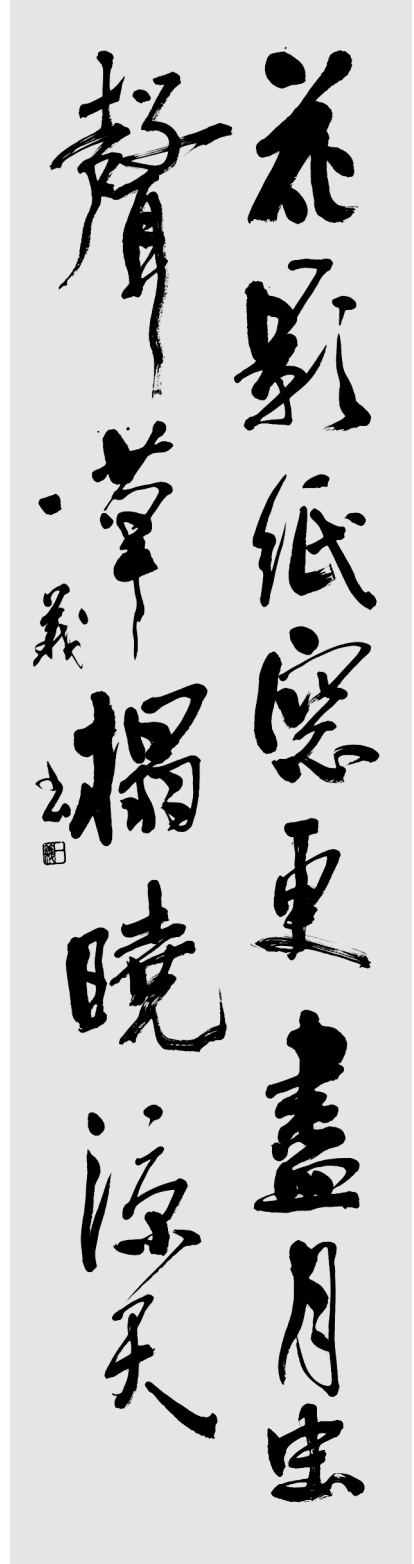 花影紙窓更盡月虫
聲草榻曉涼天
一義書